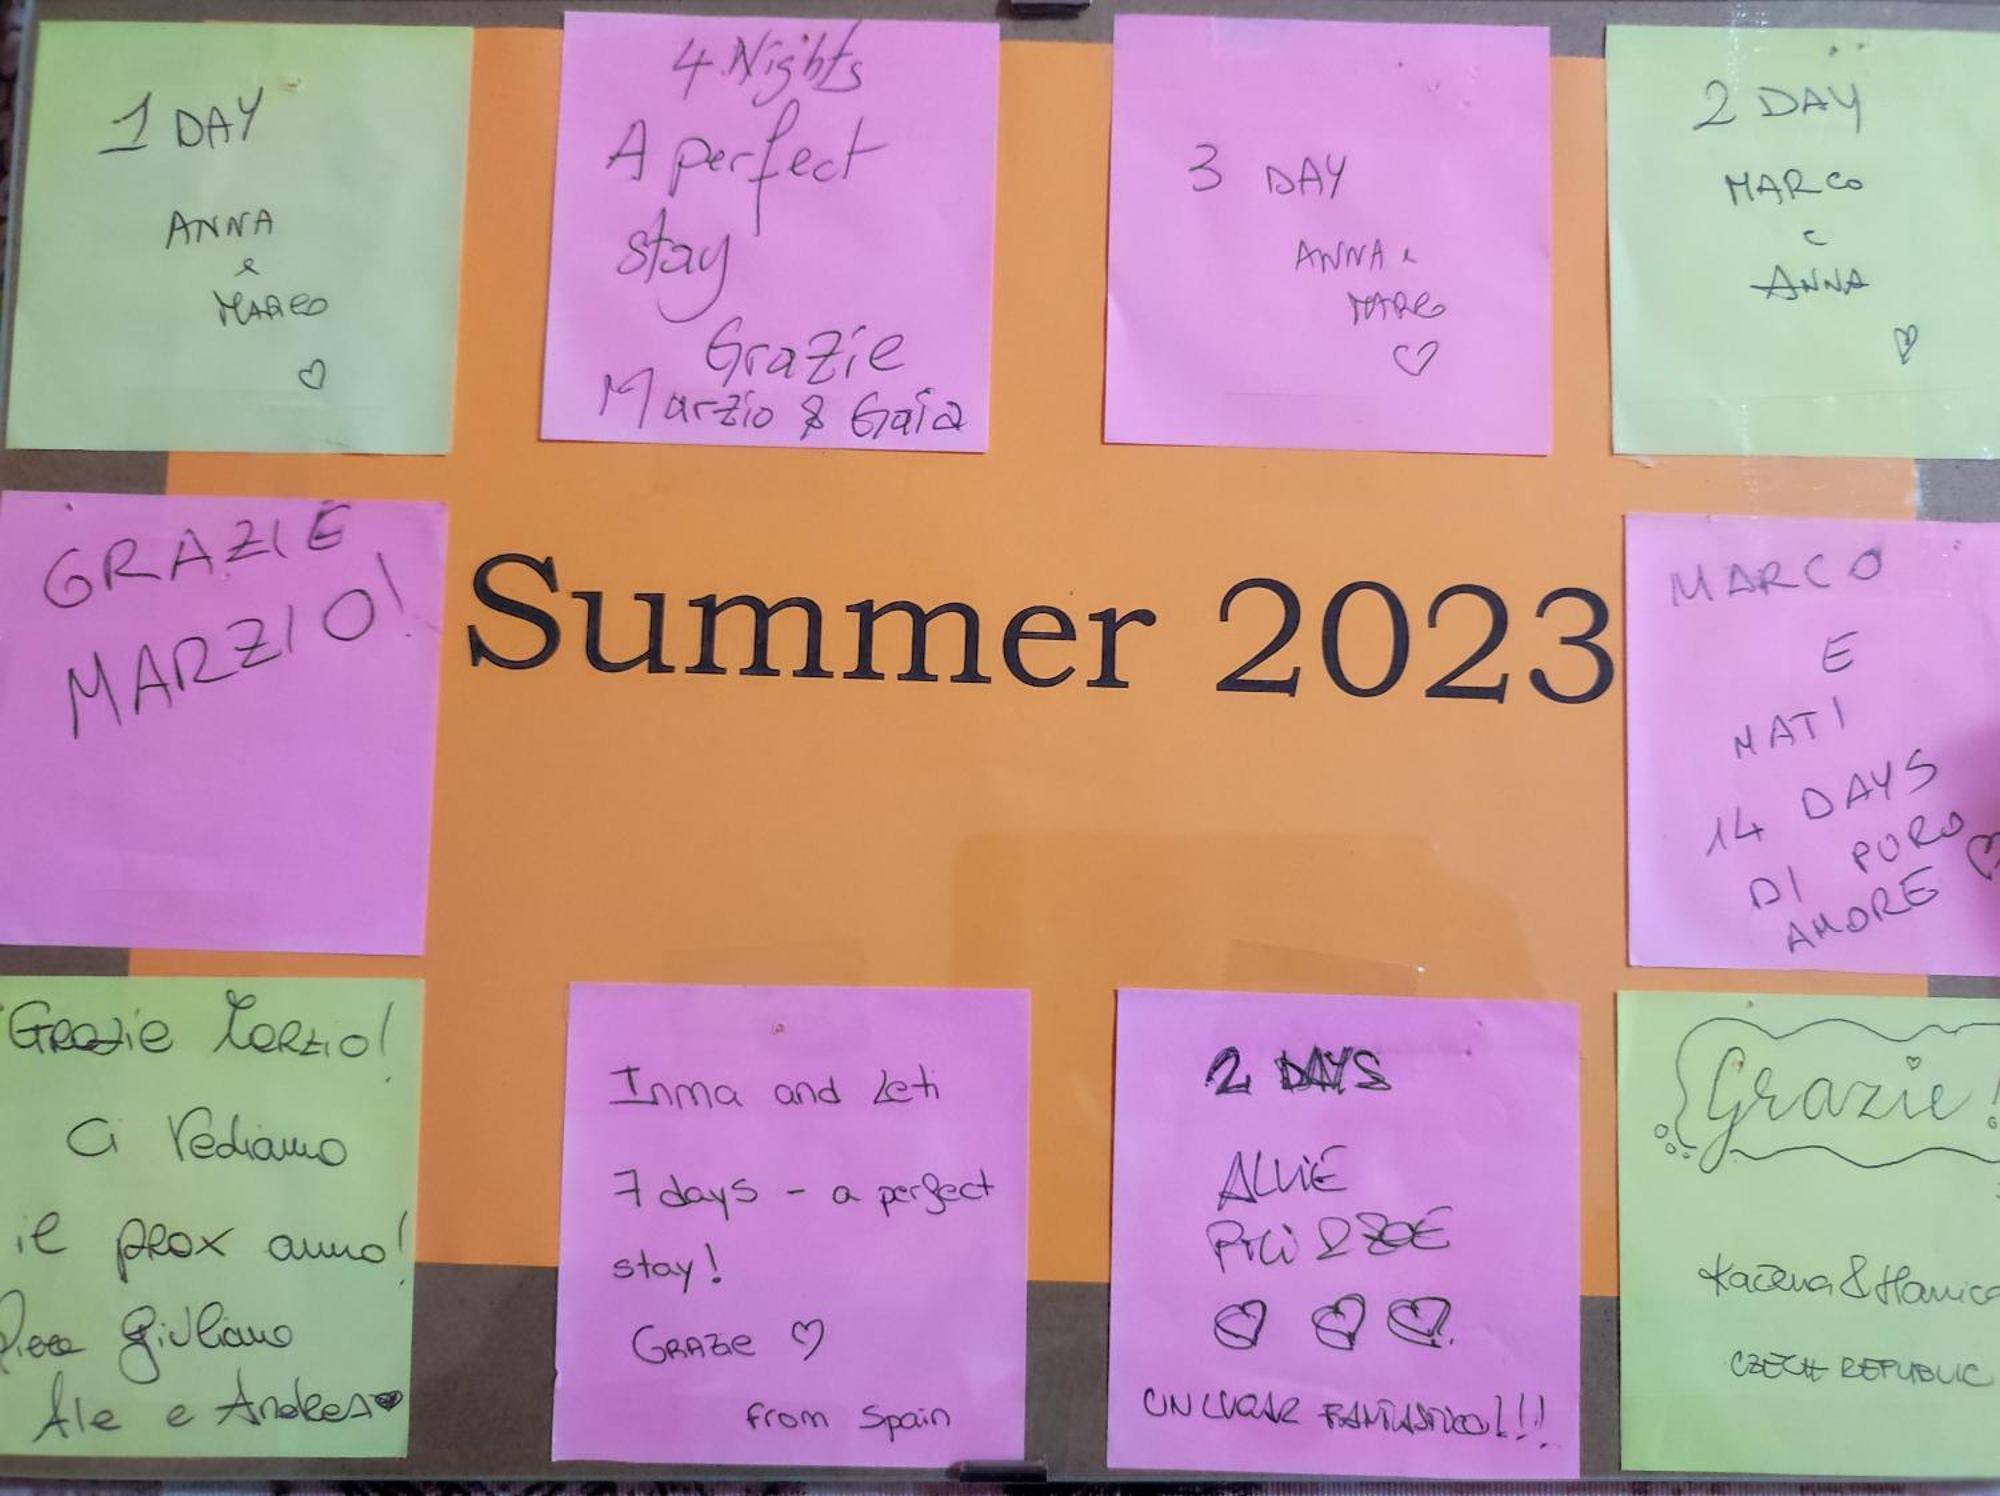 1 DAY
ANNA
e
MARCO
4 Nights
A perfect
stay
Grazie
Marzio & Gaia
3 DAY
ANNA e
MARCO
2 DAY
MARCO
e
ANNA
GRAZIE
MARZIO!
Summer 2023
MARCO
E
MATI
14 DAYS
DI PURO
AMORE
Grazie Marzio!
Ci Vediamo
il prox anno!
Giuliano
Ale e Andrea
Inma and Leti
7 days - a perfect
stay!
GRAZIE
From Spain
2 DAYS
PILI & ZOE
UN LUGAR FANTASTICO!!!
Grazie!
Kačena & Hanica
CZECH REPUBLIC